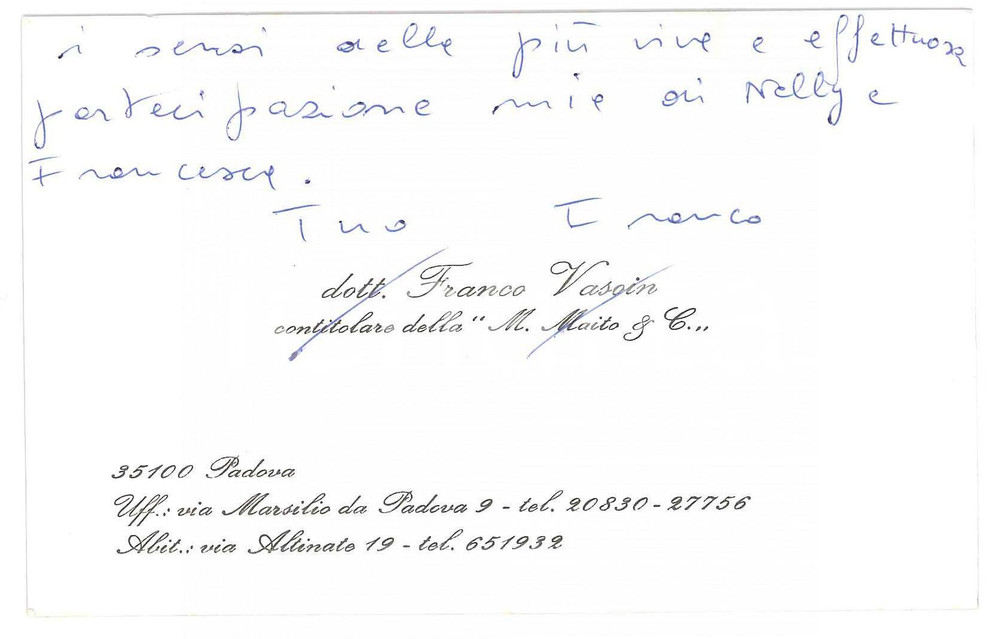 i sensi della più viva e affettuosa
partecipazione mia di Nelly e
Francesca.
Tuo Franco
dott. Franco Vasoin
contitolare della “M. Maito & C.„
35100 Padova
Uff.: via Marsilio da Padova 9 - tel. 20830 - 27756
Abit.: via Altinate 19 - tel. 651932